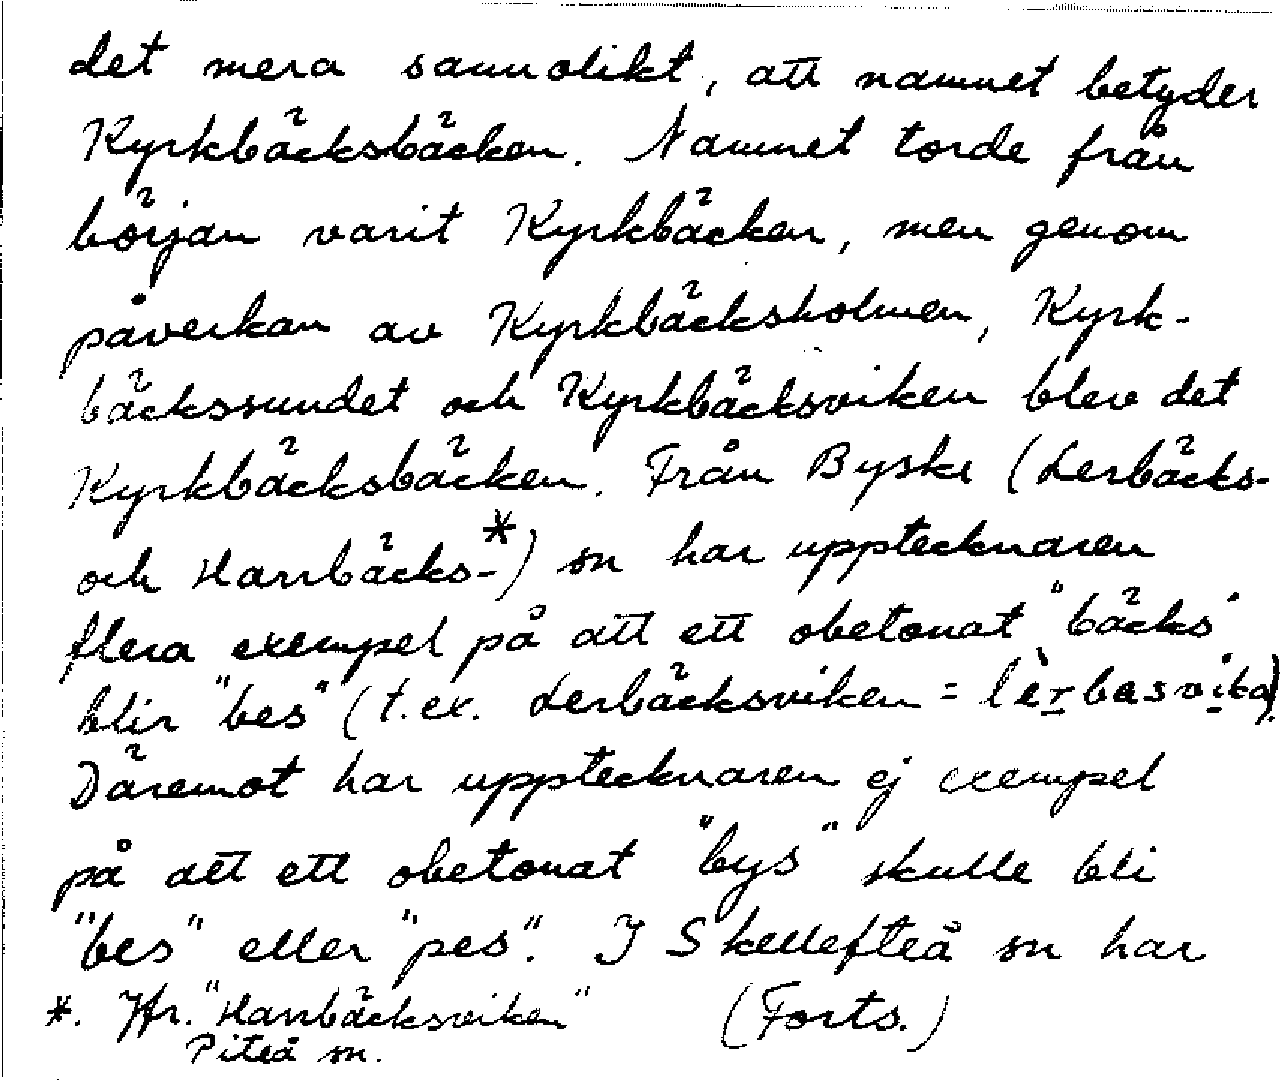 det mera sannolikt, att namnet betyder
Kyrkbäcksbäcken. Namnet torde från
början varit Kyrkbäcken, men genom
påverkan av Kyrkbäcksholmen, Kyrk-
bäckssundet och Kyrkbäcksviken blev det
Kyrkbäcksbäcken. Från Byske (Lerbäcks-
och Harrbäcks-*) sn har upptecknaren
flera exempel på att ett obetonat "bäcks"
blir "bes" (t.ex. Lerbäcksviken = lèrbasvika).
Däremot har upptecknaren ej exempel
på att ett obetonat "bys" skulle bli
"bes" eller "pes". I Skellefteå sn har
*. Jfr. "Harrbäcksviken" (Forts.)
Piteå sn.